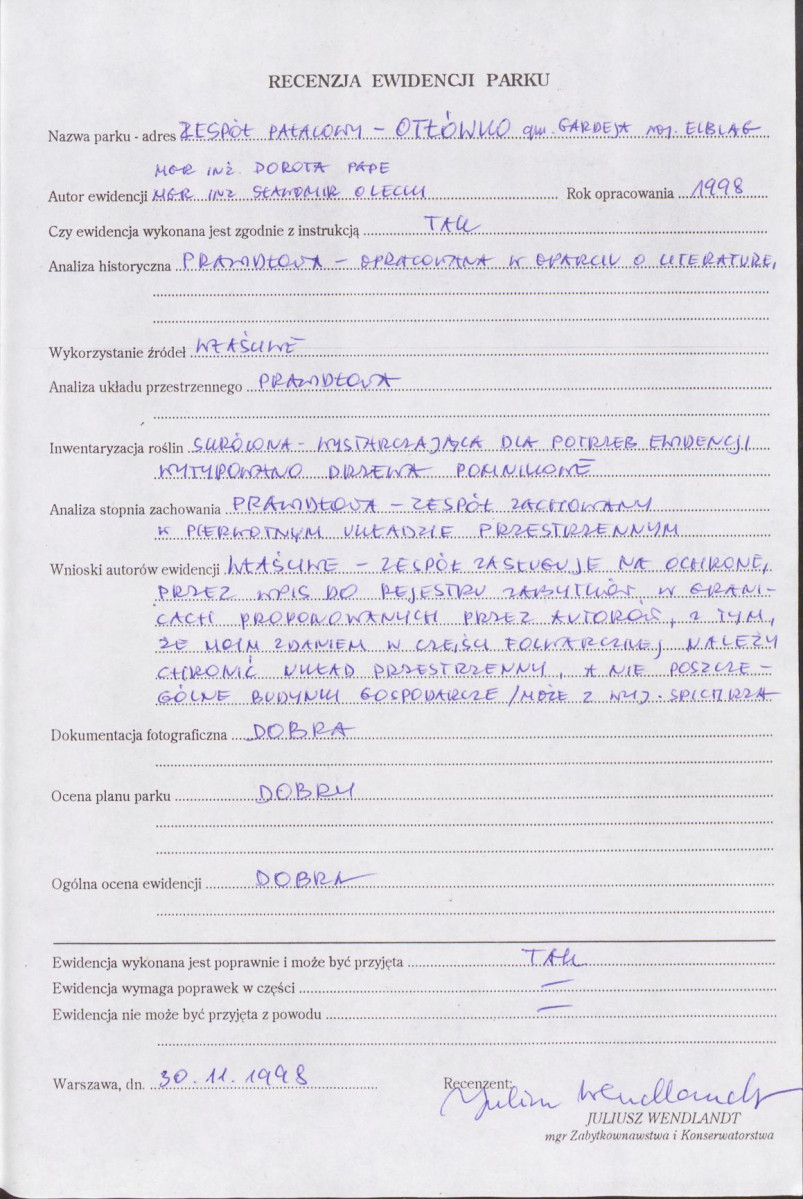 RECENZJA EWIDENCJI PARKU
Nazwa parku - adres ZESPÓŁ PAŁACOWY - OTŁÓWKO gm. GARDEJA woj. ELBLĄG
MGR INŻ. DOROTA PAPE
Autor ewidencji MGR INŻ SŁAWOMIR OLECKI Rok opracowania 1998
Czy ewidencja wykonana jest zgodnie z instrukcją TAK
Analiza historyczna PRAWIDŁOWA - OPRACOWANA W OPARCIU O LITERATURĘ,
Wykorzystanie źródeł WŁAŚCIWE
Analiza układu przestrzennego PRAWIDŁOWA
Inwentaryzacja roślin SKRÓCONA - WYSTARCZAJĄCA DLA POTRZEB EWIDENCJI
WYTYPOWANO DRZEWA POMNIKOWE
Analiza stopnia zachowania PRAWIDŁOWA - ZESPÓŁ ZACHOWANY
W PIERWOTNYM UKŁADZIE PRZESTRZENNYM
Wnioski autorów ewidencji WŁAŚCIWE - ZESPÓŁ ZASŁUGUJE NA OCHRONĘ,
PRZEZ WPIS DO REJESTRU ZABYTKÓW, W GRANI-
CACH PROPONOWANYCH PRZEZ AUTORÓW, Z TYM,
ŻE MOIM ZDANIEM W CZĘŚCI FOLWARCZNEJ NALEŻY
CHRONIĆ UKŁAD PRZESTRZENNY, A NIE POSZCZE-
GÓLNE BUDYNKI GOSPODARCZE /MOŻE Z WYJ. SPICHRZA
Dokumentacja fotograficzna DOBRA
Ocena planu parku DOBRY
Ogólna ocena ewidencji DOBRA
Ewidencja wykonana jest poprawnie i może być przyjęta TAK
Ewidencja wymaga poprawek w części —
Ewidencja nie może być przyjęta z powodu —
Warszawa, dn. 30.11.1998 Recenzent:
Juliusz Wendlandt
JULIUSZ WENDLANDT
mgr Zabytkownawstwa i Konserwatorstwa